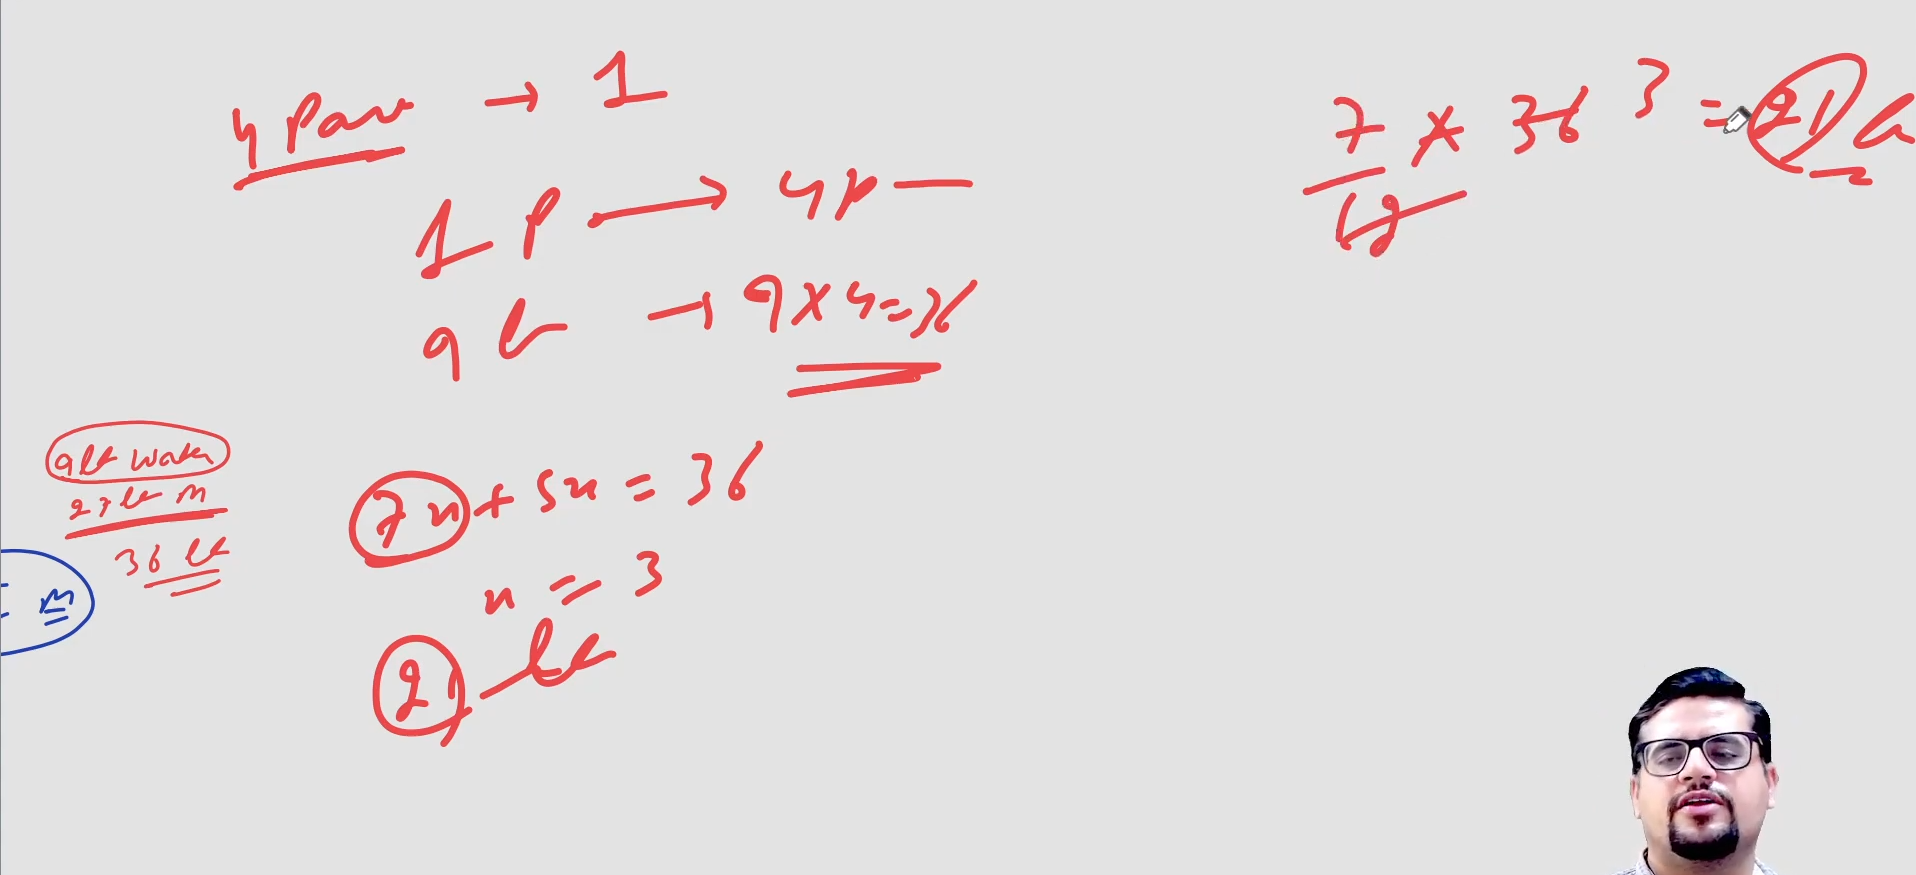 4 Part → 1
1 P → 4P
9 lt → 9 x 4 = 36
9 lt water
27 lt m
36 lt
= m
7x + 5x = 36
x = 3
21 lt
7/12 x 36 3 = 21 l